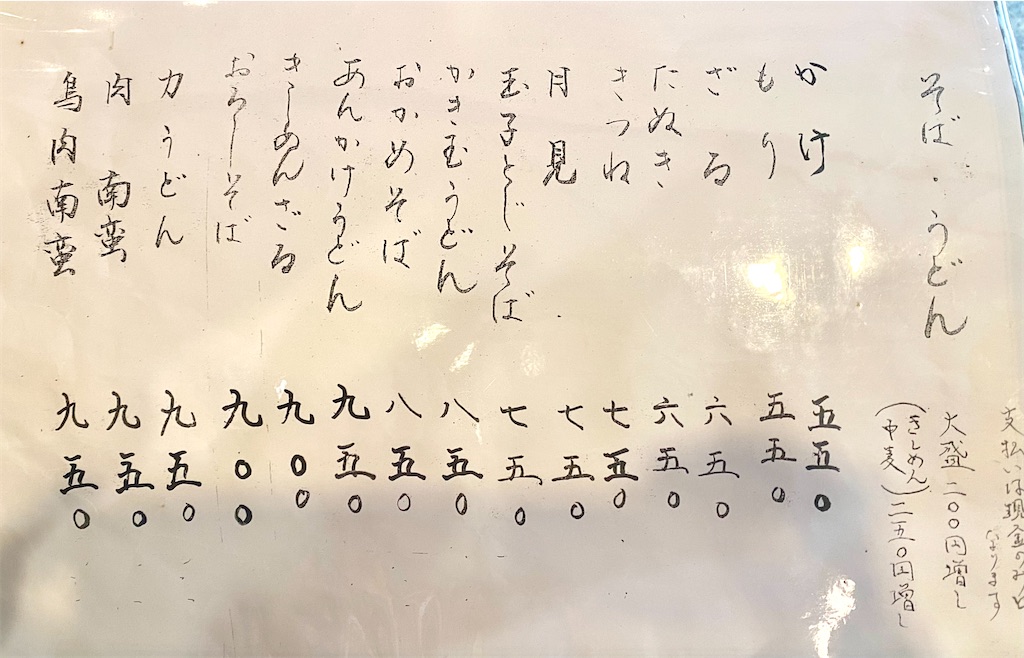 支払いは現金のみと
なります
そば・うどん
大盛二〇〇円増し
(きしめん
中麦)二五〇円増し
かけ 五五〇
もり 五五〇
ざる 六五〇
たぬき 六五〇
きつね 七五〇
月見 七五〇
玉子とじそば 七五〇
かき玉うどん 八五〇
おかめそば 八五〇
あんかけうどん 九五〇
きしめんざる 九〇〇
おろしそば 九〇〇
力うどん 九五〇
肉南蛮 九五〇
鳥肉南蛮 九五〇